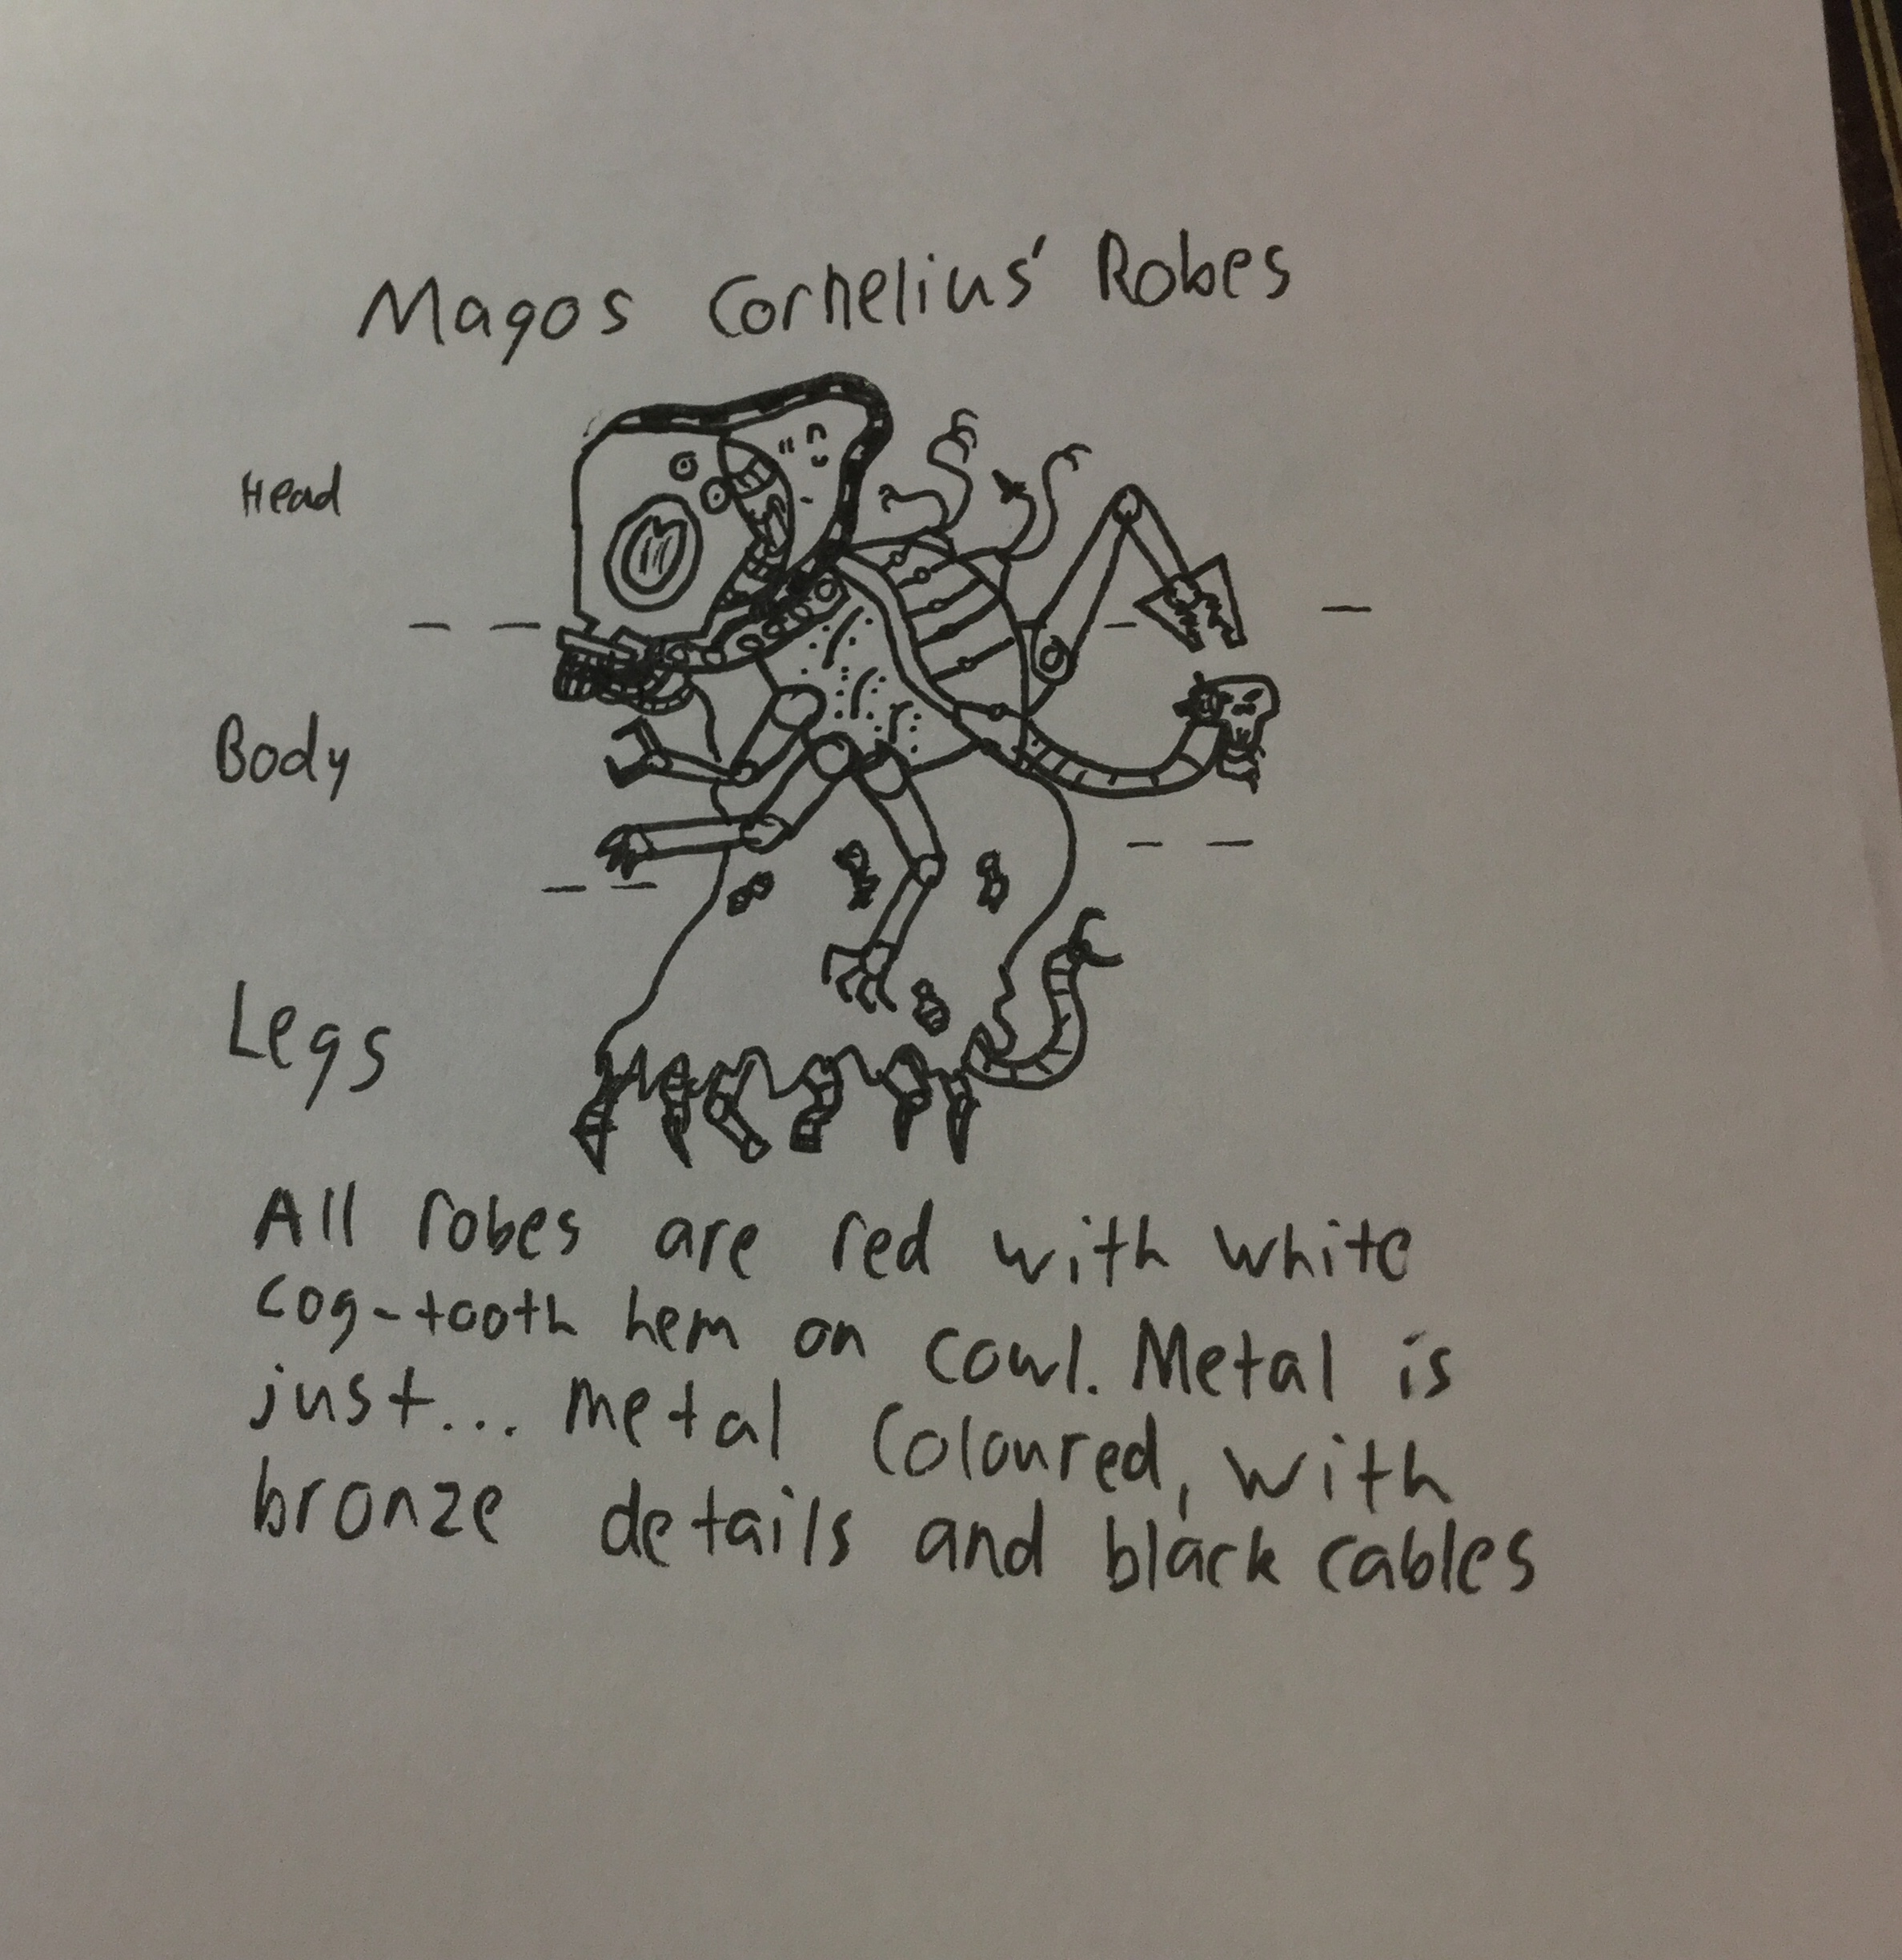 Magos Cornelius' Robes
Head
Body
Legs
All robes are red with white
cog-tooth hem on cowl. Metal is
just... metal coloured, with
bronze details and black cables